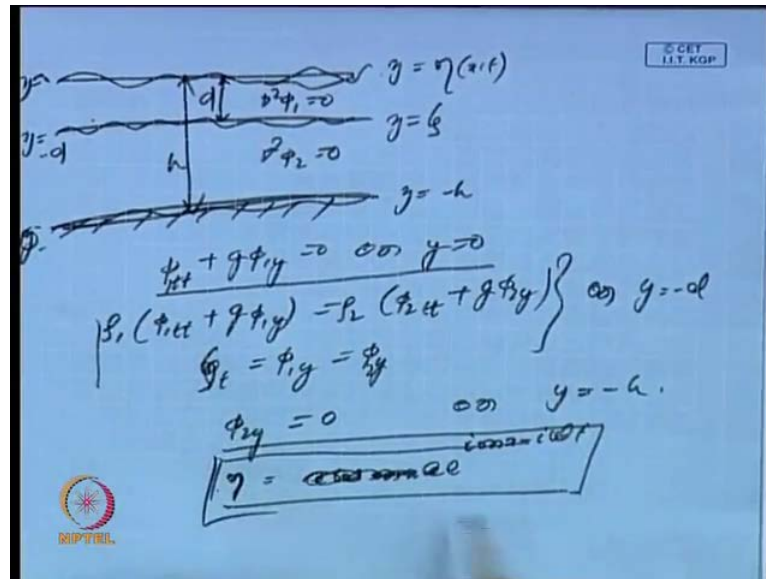 © CET
I.I.T. KGP
y = η(x,t)
d
∇²φ₁ = 0
y =
-d
h
∇²φ₂ = 0
y = ζ
y = -h
φ₁tt + gφ₁y = 0 on y = 0
ρ₁ (φ₁tt + gφ₁y) = ρ₂ (φ₂tt + gφ₂y) } on y = -d
ζt = φ₁y = φ₂y
φ₂y = 0 on y = -h.
η = ae
NPTEL